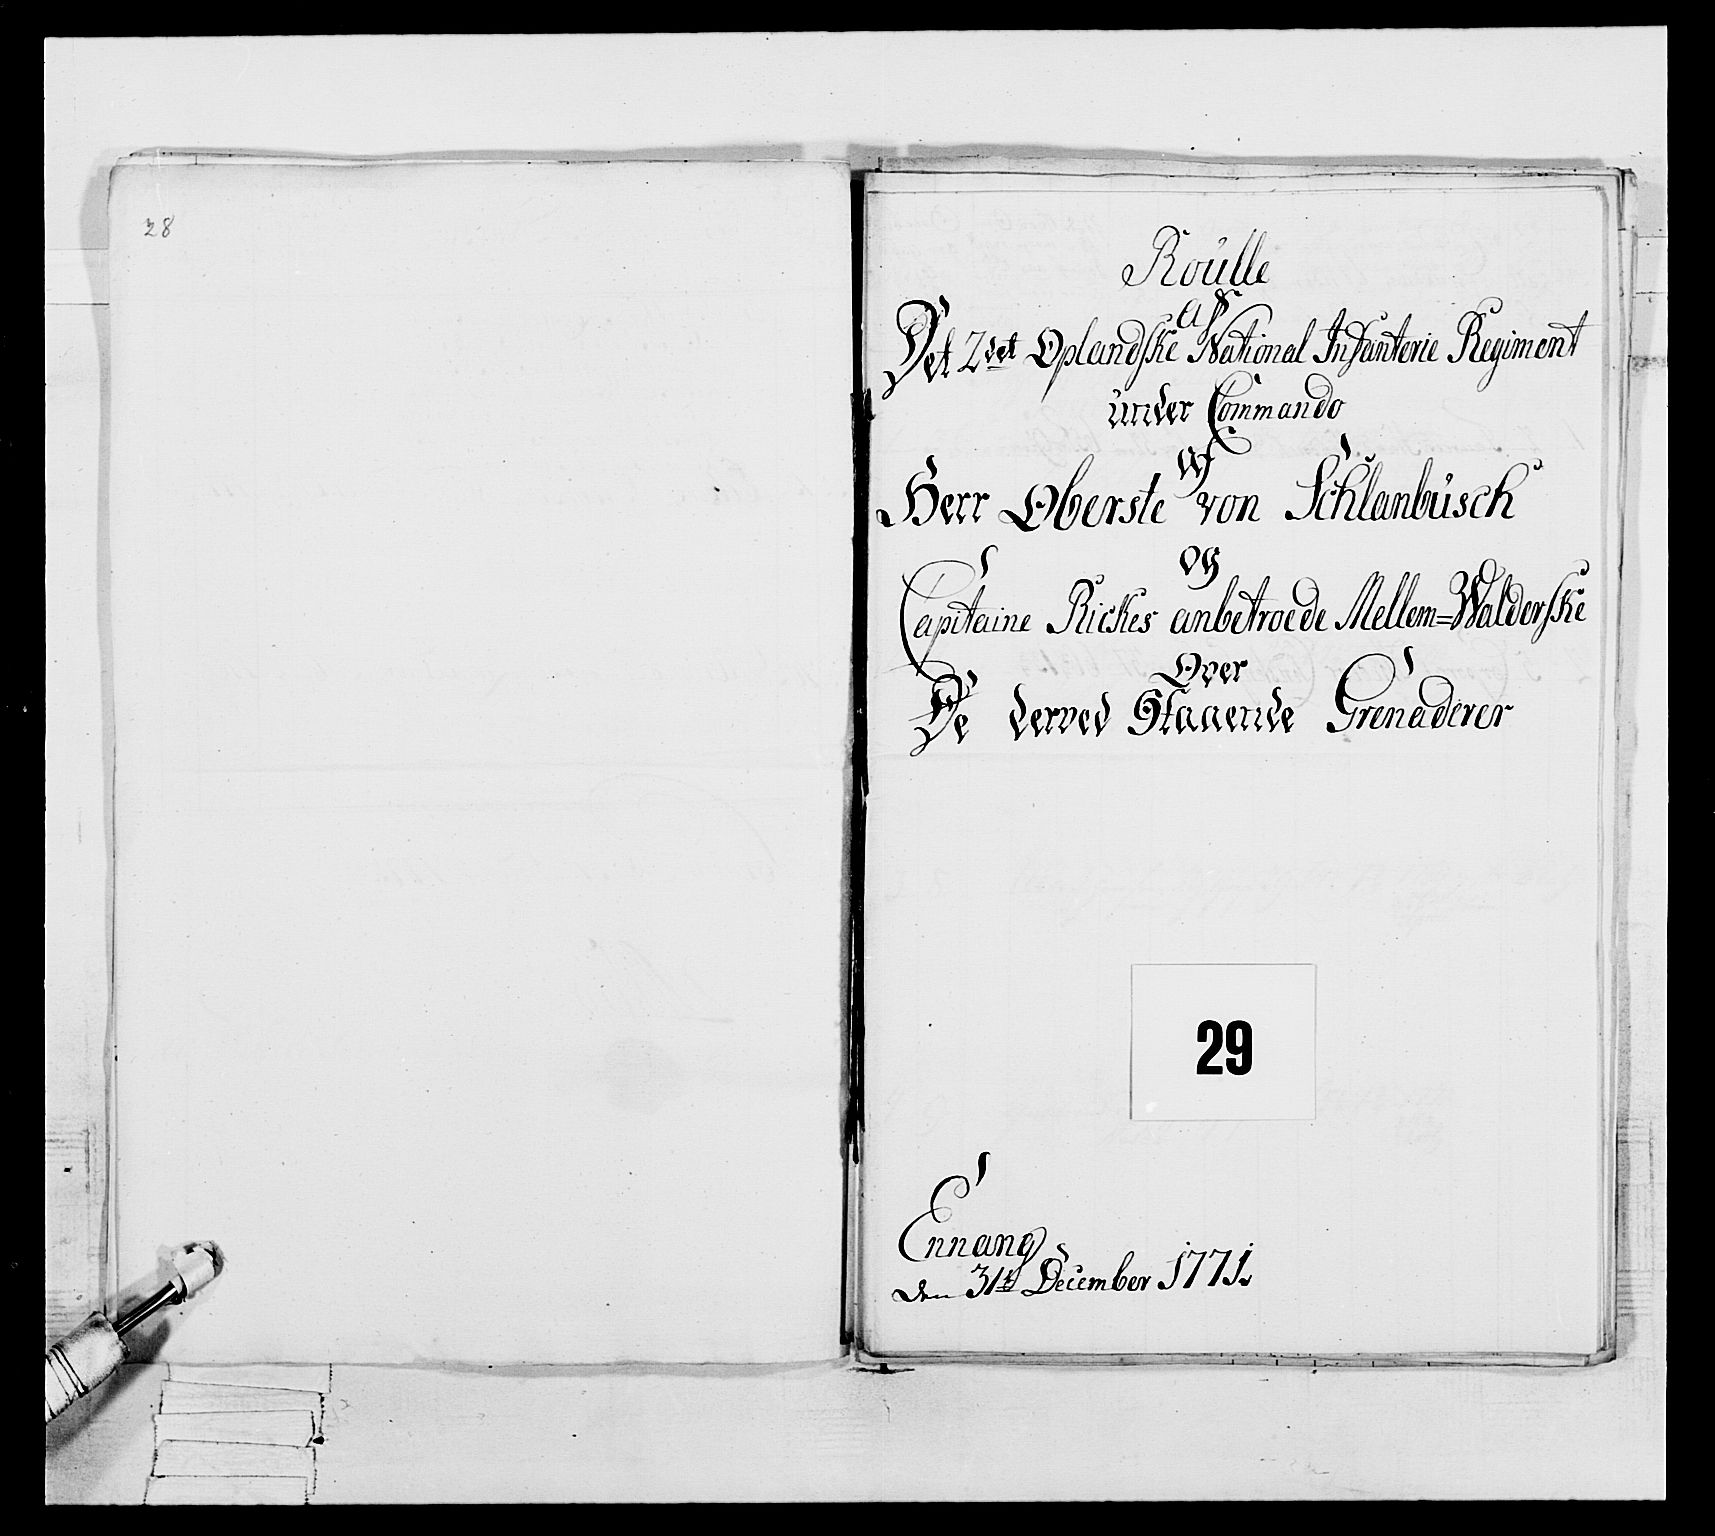 28
Roülle
af
Det 2det Oplandske National Infanterie Regiment
ünder Commando
af
Herr Oberste von Schlanbüsch
og
Capitaine Rickes anbetroede Mellem=Walderske
Over
De derved Staaende Grenaderer
29
Ennang
den 31te December 1771.